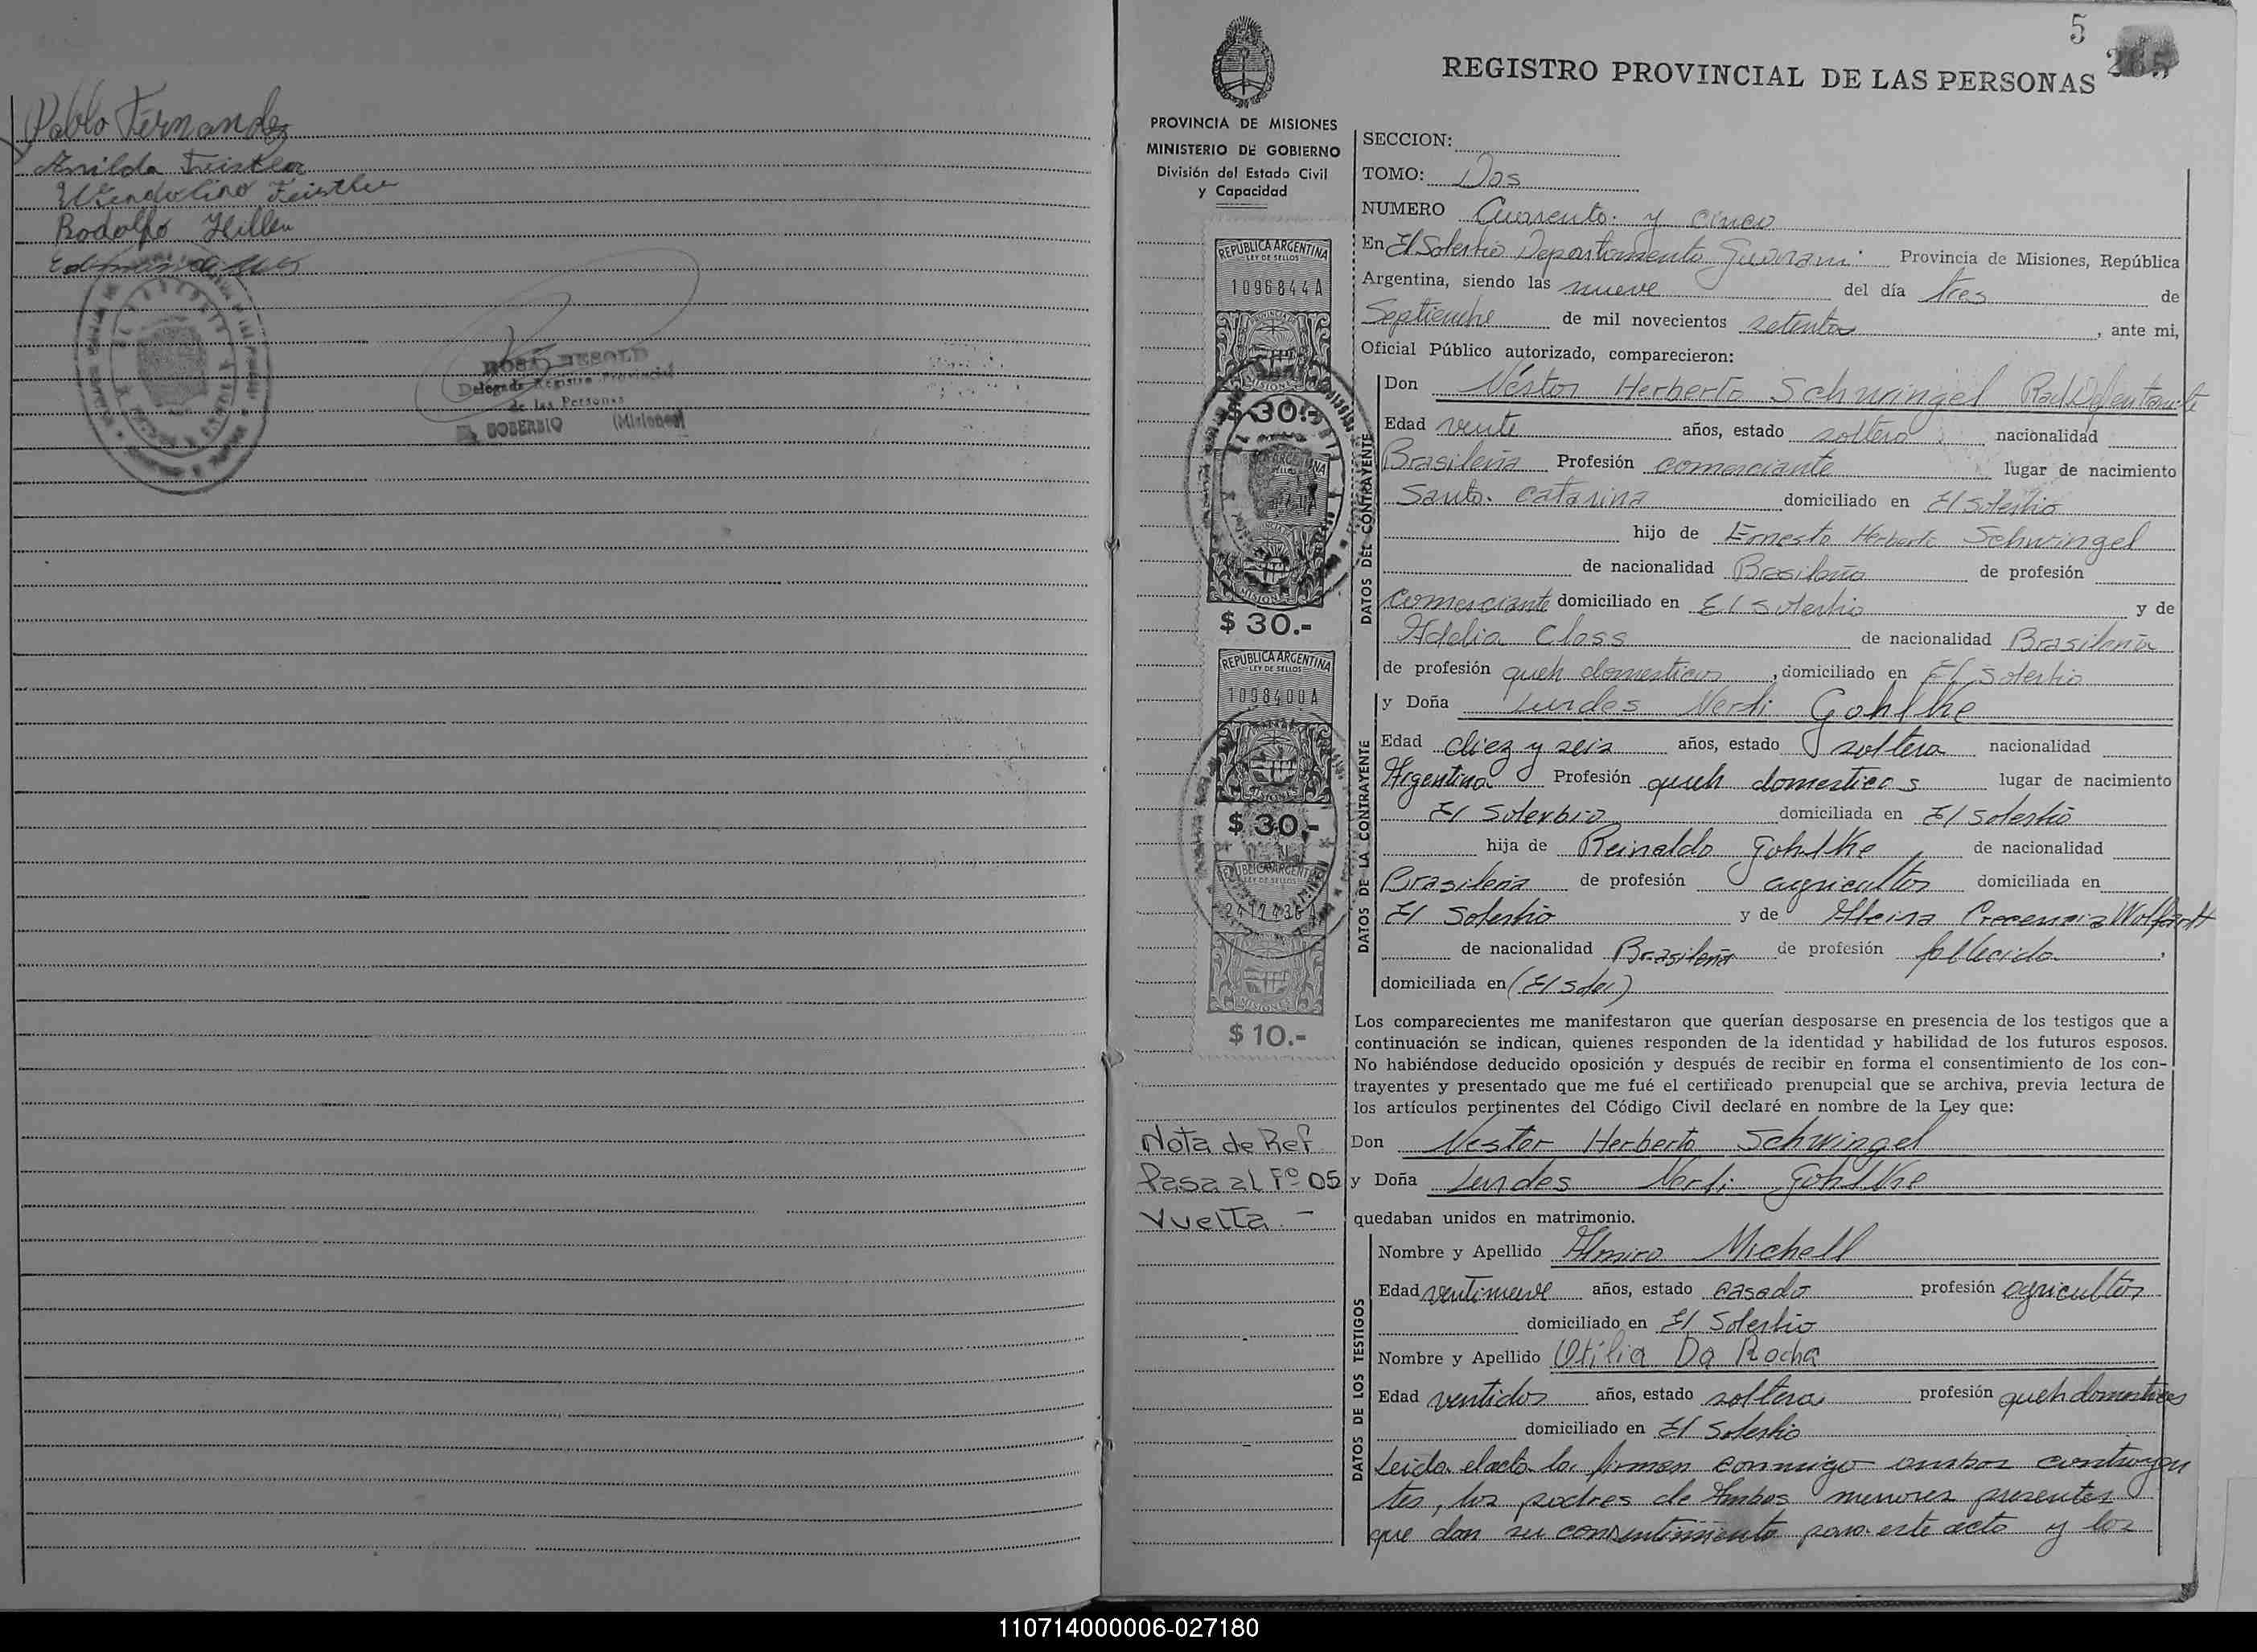 Pablo Fernandez
Rodolfo Hillen
Delegado Registro Provincial
de las Personas
EL SOBERBIO (Misiones)
5
265
REGISTRO PROVINCIAL DE LAS PERSONAS
PROVINCIA DE MISIONES
MINISTERIO DE GOBIERNO
División del Estado Civil
y Capacidad
REPUBLICA ARGENTINA
LEY DE SELLOS
1096844A
MISIONES
$ 30.-
MISIONES
$ 30.-
REPUBLICA ARGENTINA
LEY DE SELLOS
1098400A
MISIONES
$ 30.-
REPUBLICA ARGENTINA
LEY DE SELLOS
MISIONES
$ 10.-
Nota de Ref.
Pasa al Fº 05
Vuelta. -
SECCION:
TOMO: Dos
NUMERO Cuarenta y cinco
En El Soberbio Departamento Guarani Provincia de Misiones, República
Argentina, siendo las nueve del día tres de
Septiembre de mil novecientos setenta, ante mi,
Oficial Público autorizado, comparecieron:
DATOS DEL CONTRAYENTE
Don Néstor Herberto Schwingel
Edad veinte años, estado soltero nacionalidad
Brasileña Profesión comerciante lugar de nacimiento
Santa Catarina domiciliado en El Soberbio
hijo de Ernesto Herberto Schwingel
de nacionalidad Brasileña de profesión
comerciante domiciliado en El Soberbio y de
Adelia Closs de nacionalidad Brasileña
de profesión queh domesticos, domiciliado en El Soberbio
DATOS DE LA CONTRAYENTE
y Doña Lurdes Nerli Gohlke
Edad diez y seis años, estado soltera nacionalidad
Argentina Profesión queh domesticos lugar de nacimiento
El Soberbio domiciliada en El Soberbio
hija de Reinaldo Gohlke de nacionalidad
Brasileña de profesión agricultor domiciliada en
El Soberbio y de Crecencia Wolfart
de nacionalidad Brasileña de profesión fallecida.
domiciliada en (El Sober)
Los comparecientes me manifestaron que querían desposarse en presencia de los testigos que a
continuación se indican, quienes responden de la identidad y habilidad de los futuros esposos.
No habiéndose deducido oposición y después de recibir en forma el consentimiento de los con-
trayentes y presentado que me fué el certificado prenupcial que se archiva, previa lectura de
los artículos pertinentes del Código Civil declaré en nombre de la Ley que:
Don Nestor Herberto Schwingel
y Doña Lurdes Nerli Gohlke
quedaban unidos en matrimonio.
DATOS DE LOS TESTIGOS
Nombre y Apellido Almiro Michell
Edad ventinueve años, estado casado profesión agricultor
domiciliado en El Soberbio
Nombre y Apellido Otilia Da Rocha
Edad ventidos años, estado soltera profesión queh domesticos
domiciliado en El Soberbio
Leida el acta la firman conmigo ambos contrayen
tes, los padres de Ambos menores presentes
que dan su consentimiento para este acto y los
110714000006-027180